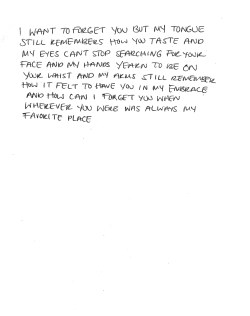 I WANT TO FORGET YOU BUT MY TONGUE
STILL REMEMBERS HOW YOU TASTE AND
MY EYES CANT STOP SEARCHING FOR YOUR
FACE AND MY HANDS YEARN TO BE ON
YOUR WAIST AND MY ARMS STILL REMEMBER
HOW IT FELT TO HAVE YOU IN MY EMBRACE
AND HOW CAN I FORGET YOU WHEN
WHEREVER YOU WERE WAS ALWAYS MY
FAVORITE PLACE